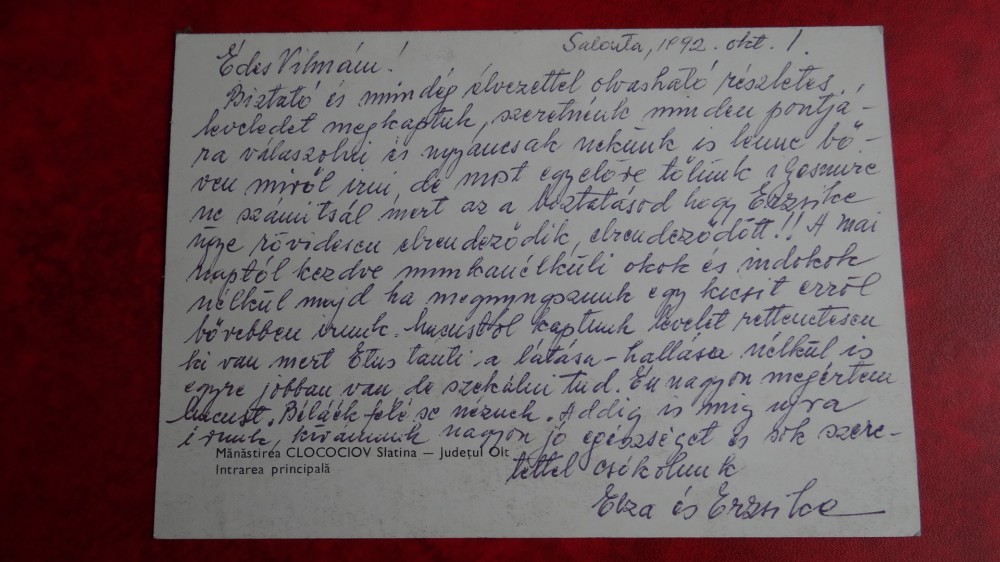 Salonta, 1992. okt. 1.
Édes Vilmám!
Biztató és mindég élvezettel olvasható részletes
leveledet megkaptuk, szeretnénk minden pontjá-
ra válaszolni és ugyancsak nekünk is lenne bő-
ven miről irni, de most egyelőre tőlünk ilyesmire
ne számitsál mert az a biztatásod hogy Erzsike
ügye rövidesen elrendeződik, elrendeződött!! A mai
naptól kezdve munkanélküli okok és indokok
nélkül majd ha megnyugszunk egy kicsit erről
bővebben irunk. Macustól kaptunk levelet rettenetesen
ki van mert Etus tanti a látása-hallása nélkül is
egyre jobban van de szekálni tud. Én nagyon megértem
Macust. Béláék felé se néznek. Addig is mig ujra
irunk, kivánunk nagyon jó egészséget és sok szere-
tettel csókolunk
Elza és Erzsike
Mănăstirea CLOCOCIOV Slatina — Județul Olt
Intrarea principală